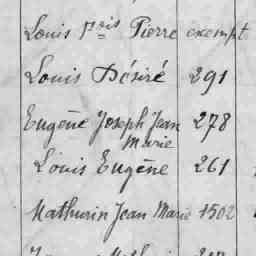 Louis Fçois Pierre exempt
Louis Désiré 291
Eugène Joseph Jean 278
Marie
Louis Eugène 261
Mathurin Jean Marie 1502